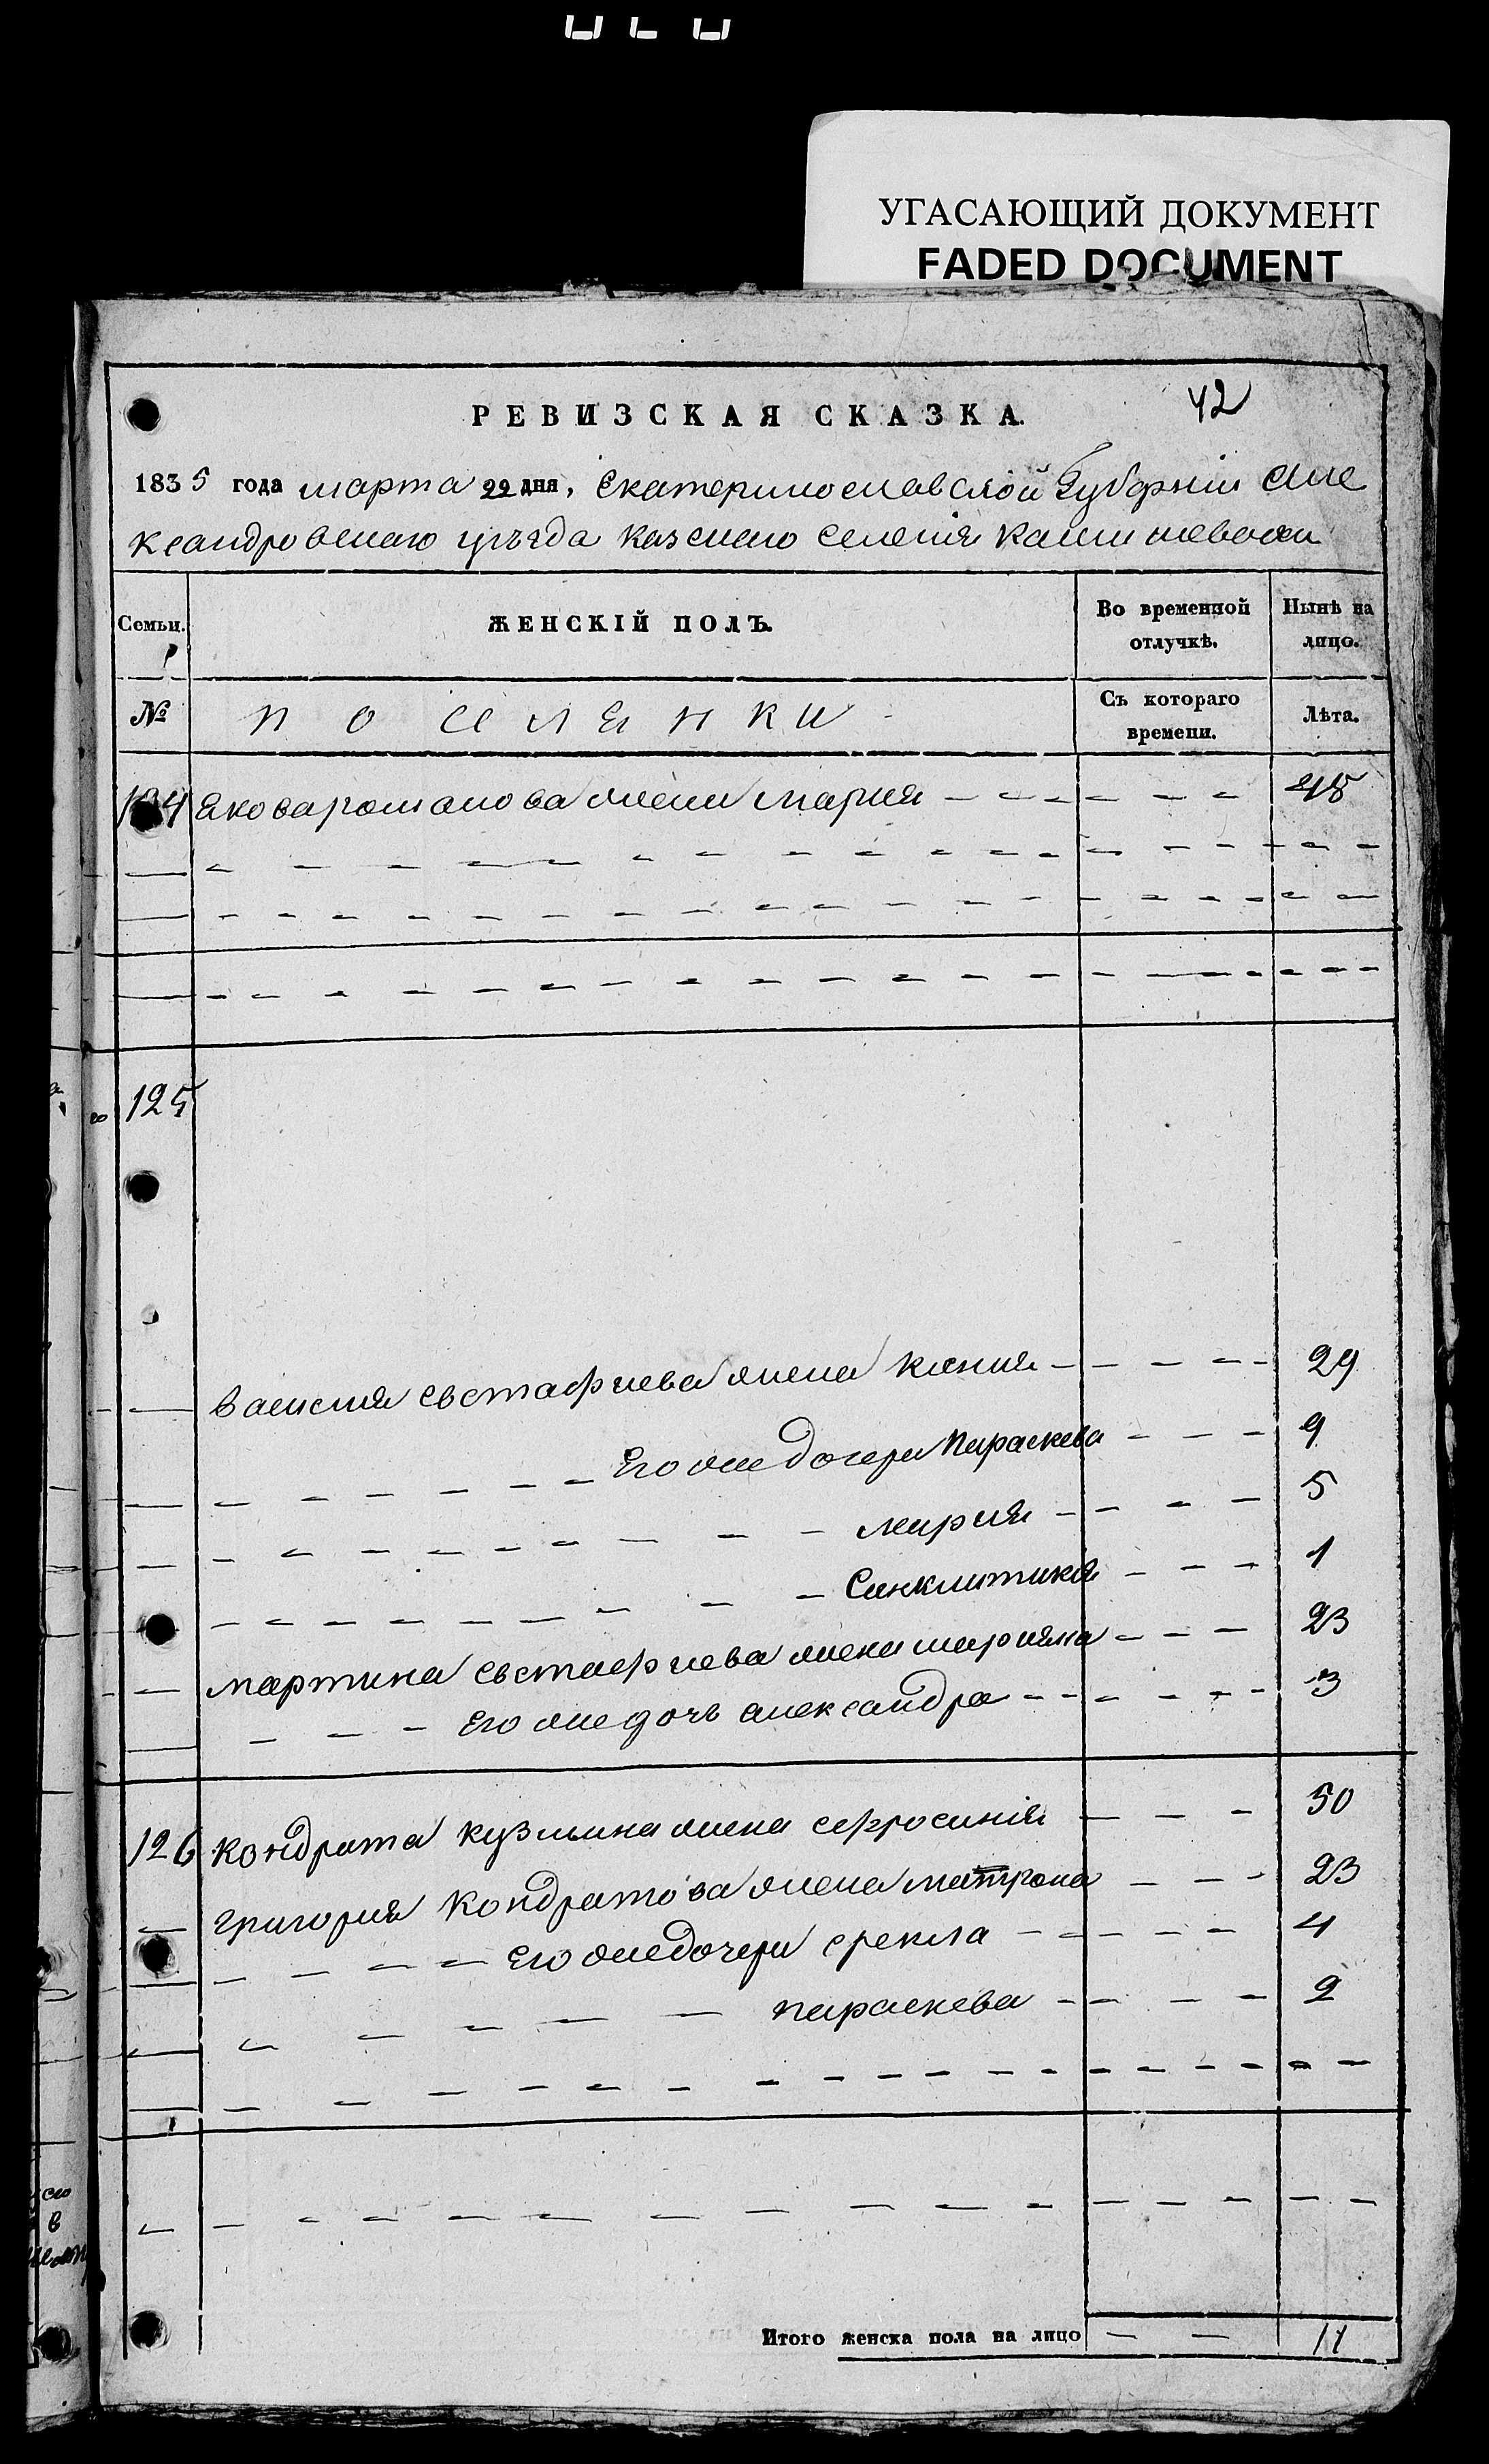 УГАСАЮЩИЙ ДОКУМЕНТ
FADED DOCUMENT
РЕВИЗСКАЯ СКАЗКА. 42
1835 года марта 22 дня, Екатеринославской Губернии Але
ксандровскаго уѣзда казеннаго селения
Семьи. ЖЕНСКІЙ ПОЛЪ. Во временной отлучкѣ. Нынѣ на лицо.
№ поселянки Съ котораго времени. Лѣта.
124 Якова романова жена мария 48
125
василия евстафиева жена ксения 29
Его же дочери параскева 9
мария 5
Синклитикия 1
мартина евстафиева жена мариана 23
Его же дочь александра 3
126 кондрата кузмина жена ефросиния 50
григория кондратова жена матрона 23
Его же дочери фекла 4
параскева 2
Итого женска пола на лицо 11